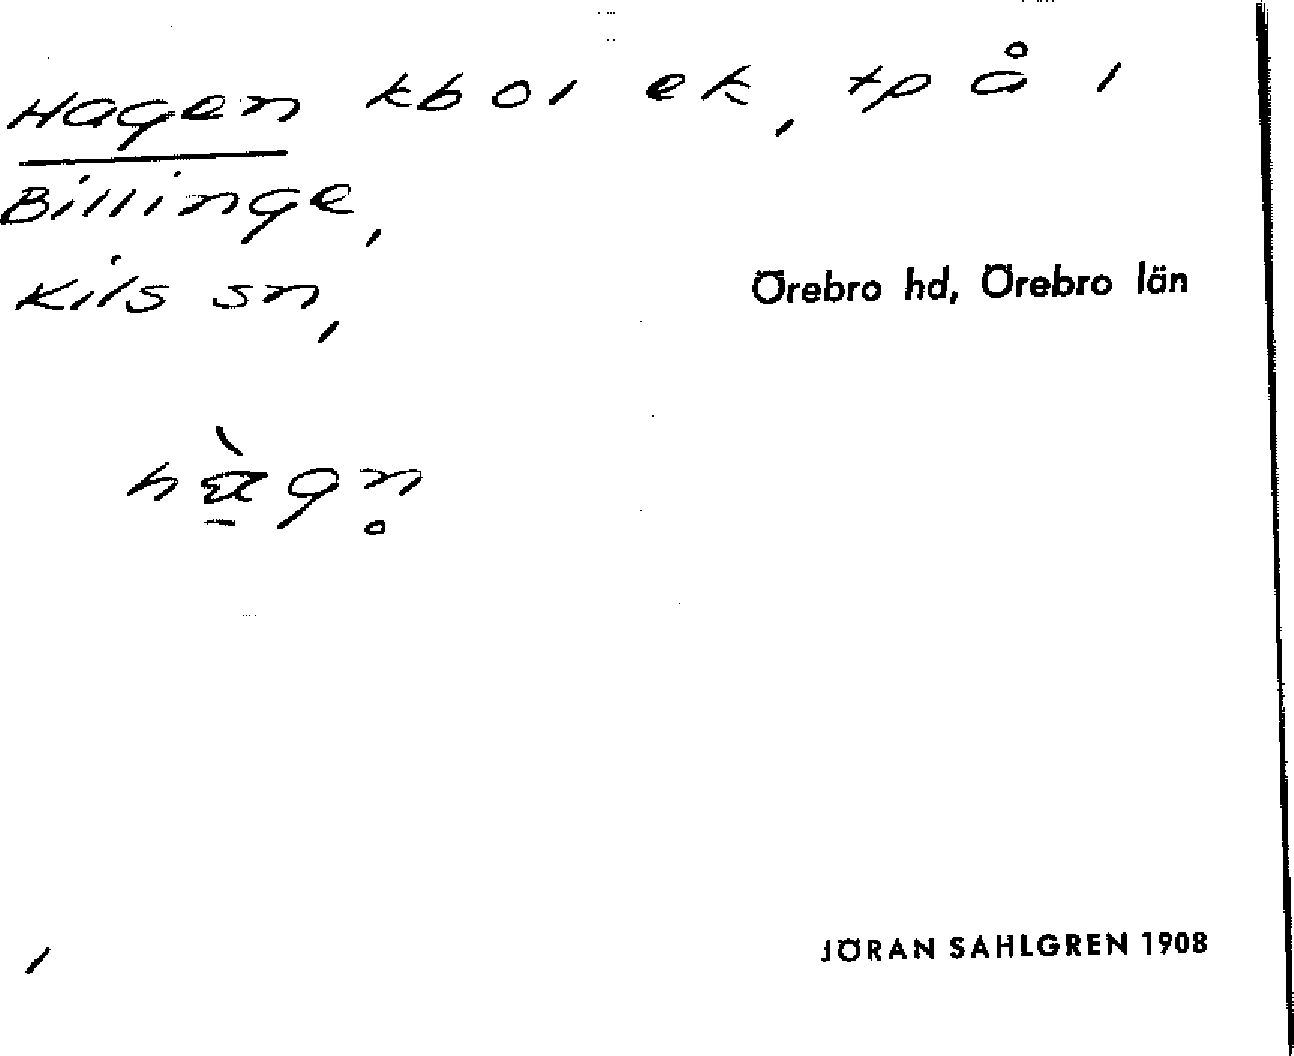 Hagen kbol ek, tp å 1
Billinge,
Kils sn,
Örebro hd, Örebro län
JÖRAN SAHLGREN 1908